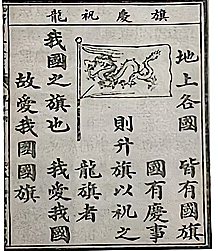 旗慶祝龍
地上各國 皆有國旗
國有慶事
則升旗以祝之
龍旗者
我國之旗也 我愛我國
故愛我國國旗